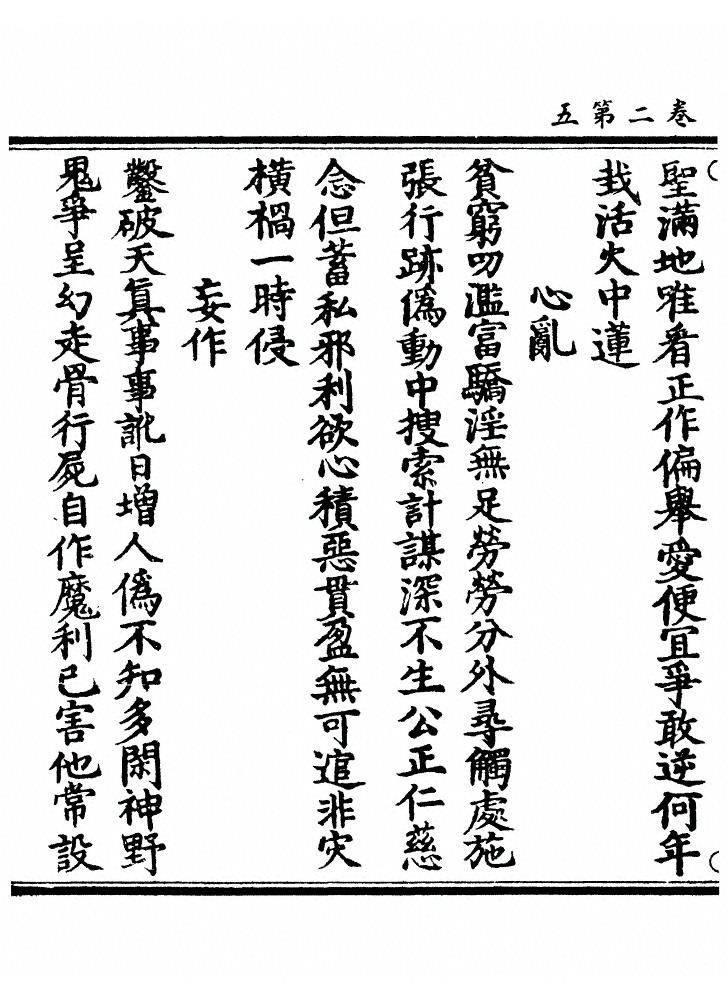 卷二第五
聖滿地唯看正作偏舉愛便宜爭敢逆何年
㦲活火中蓮
心亂
貧窮叨濫富驕淫無足勞勞分外尋觸處施
張行跡僞動中搜索計謀深不生公正仁慈
念但蓄私邪利欲心積惡貫盈無可逭非灾
橫禍一時侵
妄作
鑿破天眞事事訛日增人僞不知多閑神野
鬼爭呈幻走骨行屍自作魔利己害他常設